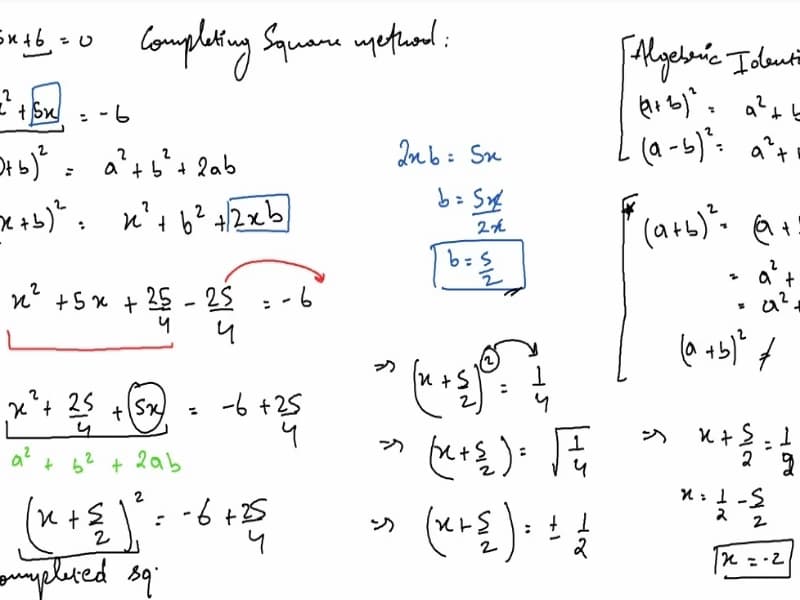 5x+6 = 0 Completing Square method:
x² + 5x = -6
(a+b)² = a² + b² + 2ab
(x+b)² = x² + b² + 2xb
x² + 5x + 25/4 - 25/4 = -6
x² + 25/4 + 5x = -6 + 25/4
a² + b² + 2ab
(x + 5/2)² = -6 + 25/4
Completed sq.
2xb = 5x
b = 5x/2x
b = 5/2
⇒ (x + 5/2)² = 1/4
⇒ (x + 5/2) = √1/4
⇒ (x + 5/2) = ± 1/2
Algebric Identi
(a+b)² = a² + b
(a-b)² = a² +
* (a+b)² = (a +
= a² +
= a² +
(a+b)² ≠
⇒ x + 5/2 = 1/2
x = 1/2 - 5/2
x = -2